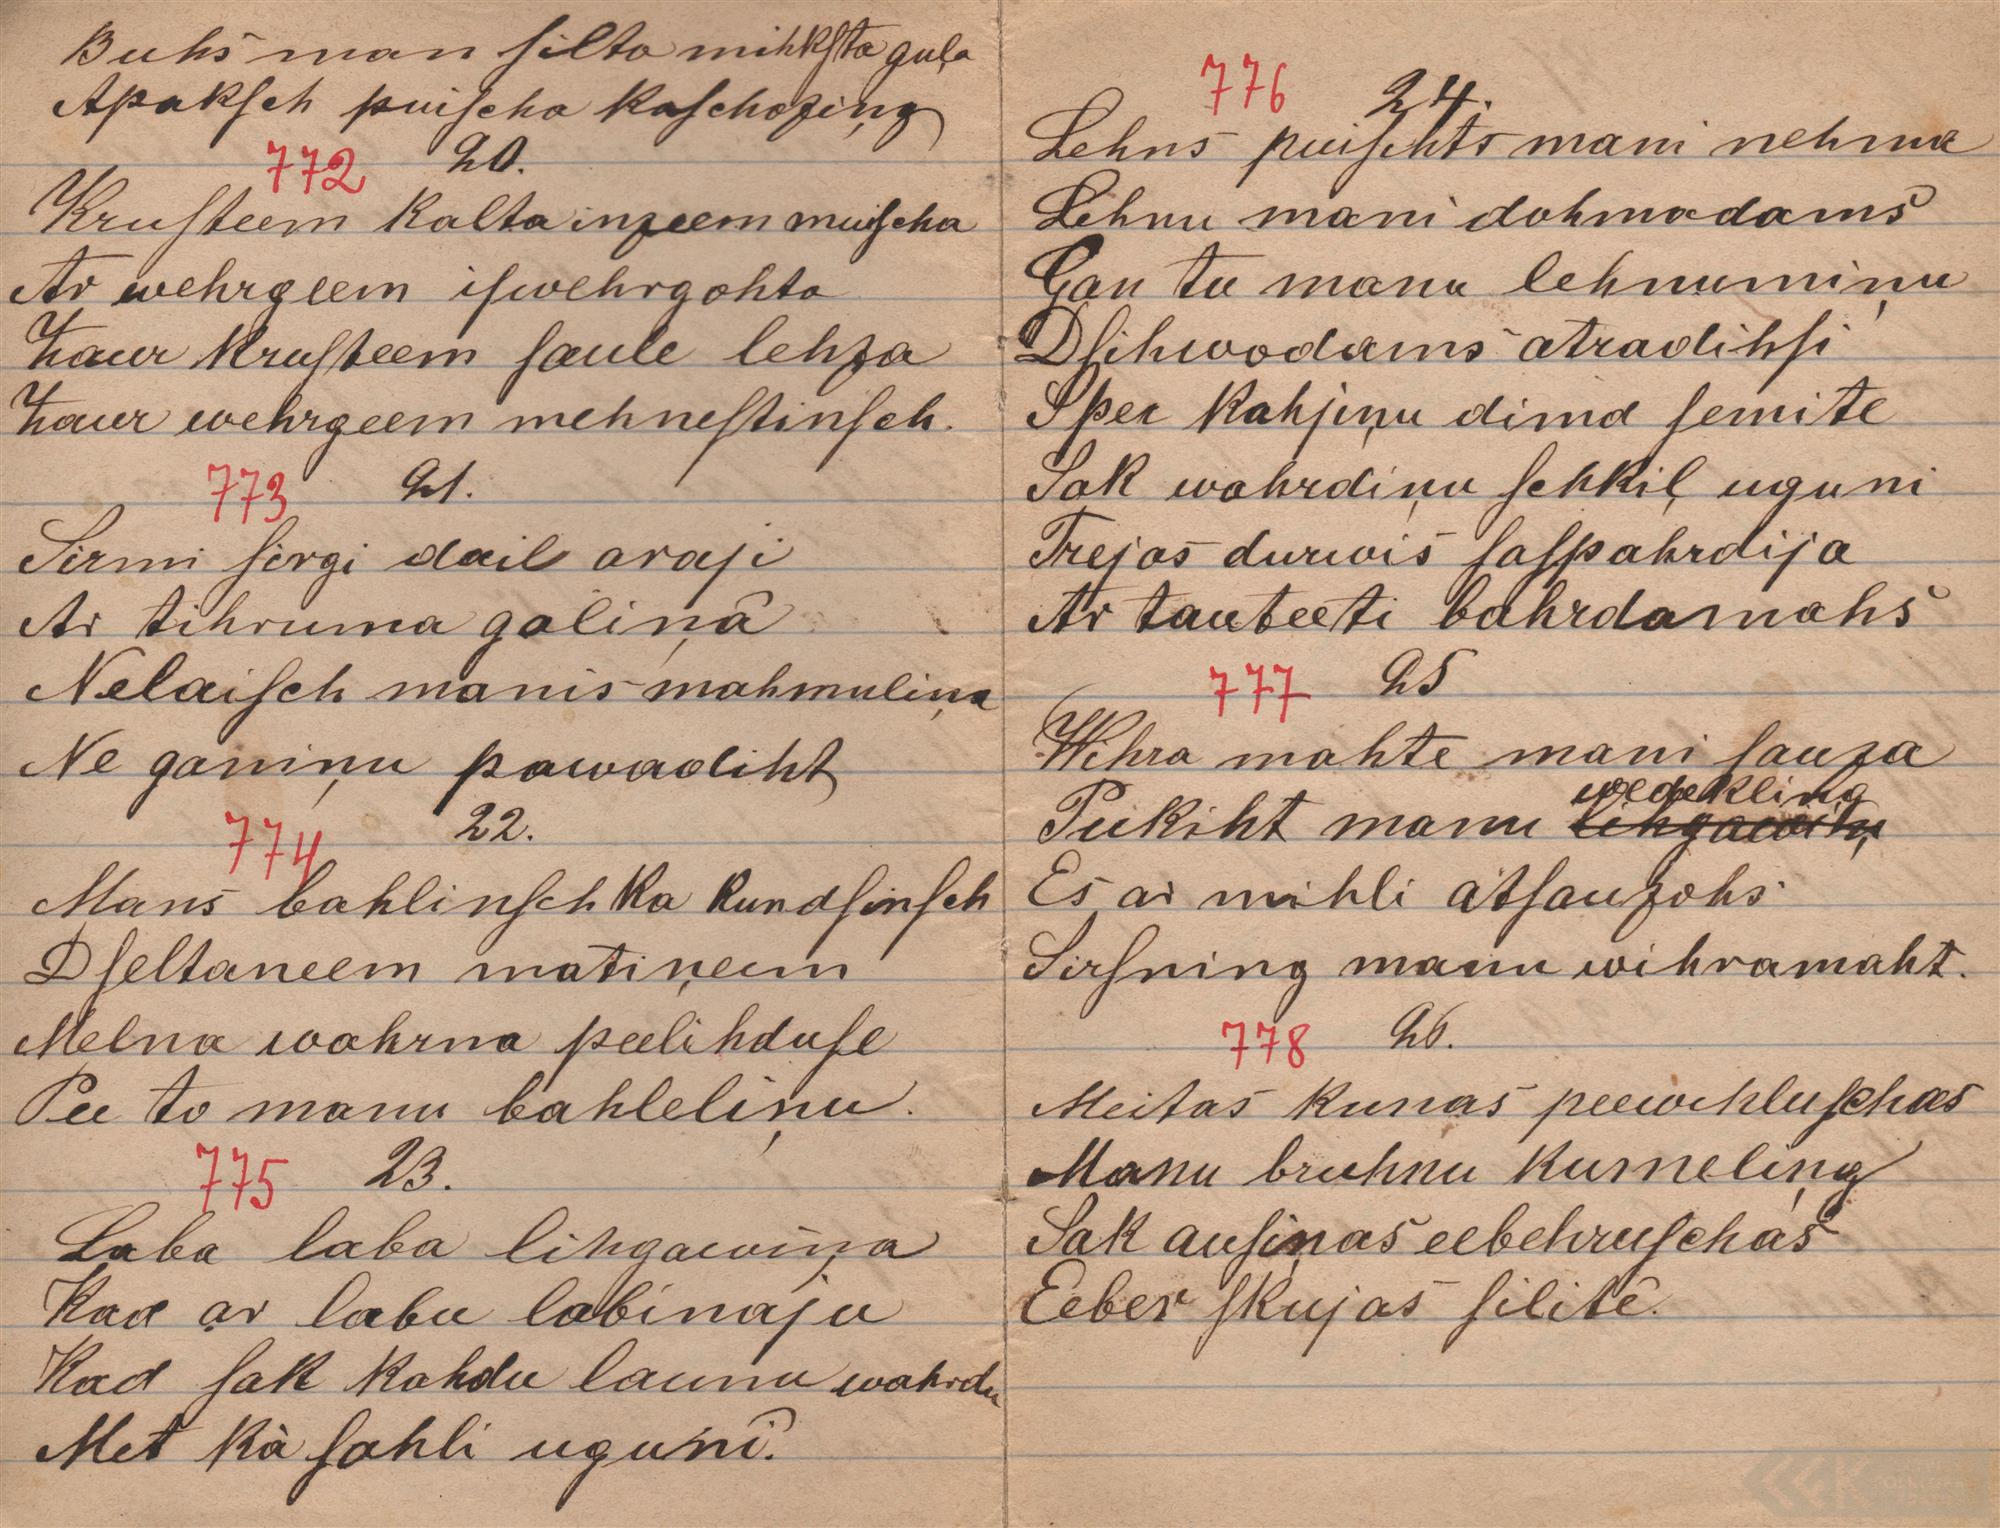 Buhs man ſilta mihkſta guļa
Apakſch puiſcha kaſchoziņg
772 20.
Kruſteem kalta inzeem muiſcha
Ar wehrgeem iſwehrgohta
Zaur kruſteem ſaule lehza
Zaur wehrgeem mehneſtinſch.
773 21.
Sirmi ſirgi dail araji
Ar tihruma galiņâ
Nelaiſch manis mahmuliņa
Ne ganiņu pawadiht
774 22.
Mans bahlinſch ka kundſinſch
Dſeltaneem matiņeem
Melna wahrna peelihduſe
Pee to manu bahleliņu.
775 23.
Laba laba lihgawiņa
Kad ar labu labinaju
Kad ſak kahdu launu wahrdu
Met kà ſahli uguni.
776 24.
Lehns puiſchts mani nehma
Lehnu mani dohmadams
Gan tu manu lehnumiņu
Dſihwodams atradihſi
Sper kahjiņu dimd ſemite
Sak wahrdiņu ſchkiļ uguni
Trejas durwis ſaſpahrdija
Ar tauteeti bahrdamahs
777 25
Wihra mahte mani ſauza
wedekliņg
Pukiht manu lihgawiņu
Es ar mihli atſauzohs
Sirſning manu wihramaht.
778 26.
Meitas kunas peewihluſchas
Manu bruhnu kumeliņg
Sak auſiņas eebehruſchas
Eeber ſkujas ſilitê.